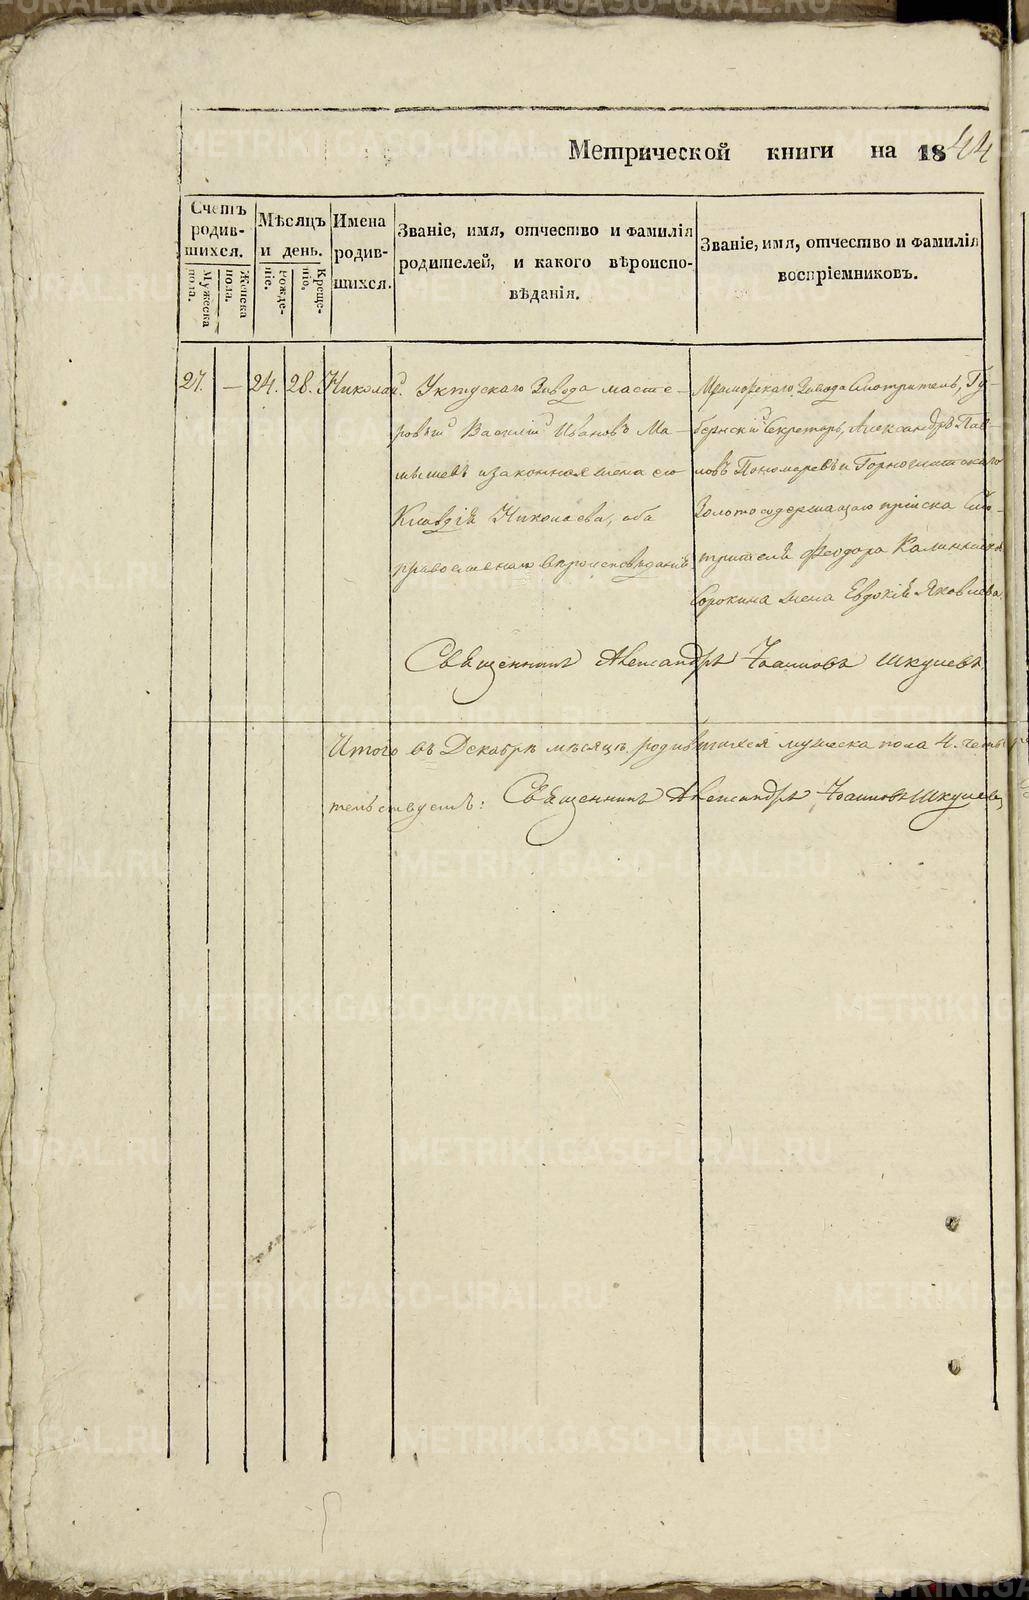 Метрической книги на 1844
Счетъ родившихся.
Мужеска пола.
Женска пола.
Мѣсяцъ и день.
рожденіе.
Крещеніе.
Имена родившихся.
Званіе, имя, отчество и фамилія
родителей, и какого вѣроиспо-
вѣданія.
Званіе, имя, отчество и фамилія
воспріемниковъ.
27. — 24. 28. Николай.
Уктускаго Завода масте-
ровый Василій Ивановъ Ма-
лышевъ и законная жена его
Клавдія Николаева, оба
православнаго вѣроисповѣданія
Мраморскаго Завода Смотритель, Гу-
бернскій Секретарь, Александръ Пав-
ловъ Пономаревъ и Горнощитскаго
Золотосодержащаго пріиска Смо-
трителя Феодора
Сорокина жена Евдокія Яковлева.
Священникъ Александръ Іоанновъ Шкулевъ
Итого въ Декабрѣ мѣсяцѣ родившихся мужеска пола 4.
тельствуетъ: Священникъ Александръ Іоанновъ Шкулевъ
METRIKI.GASO-URAL.RU